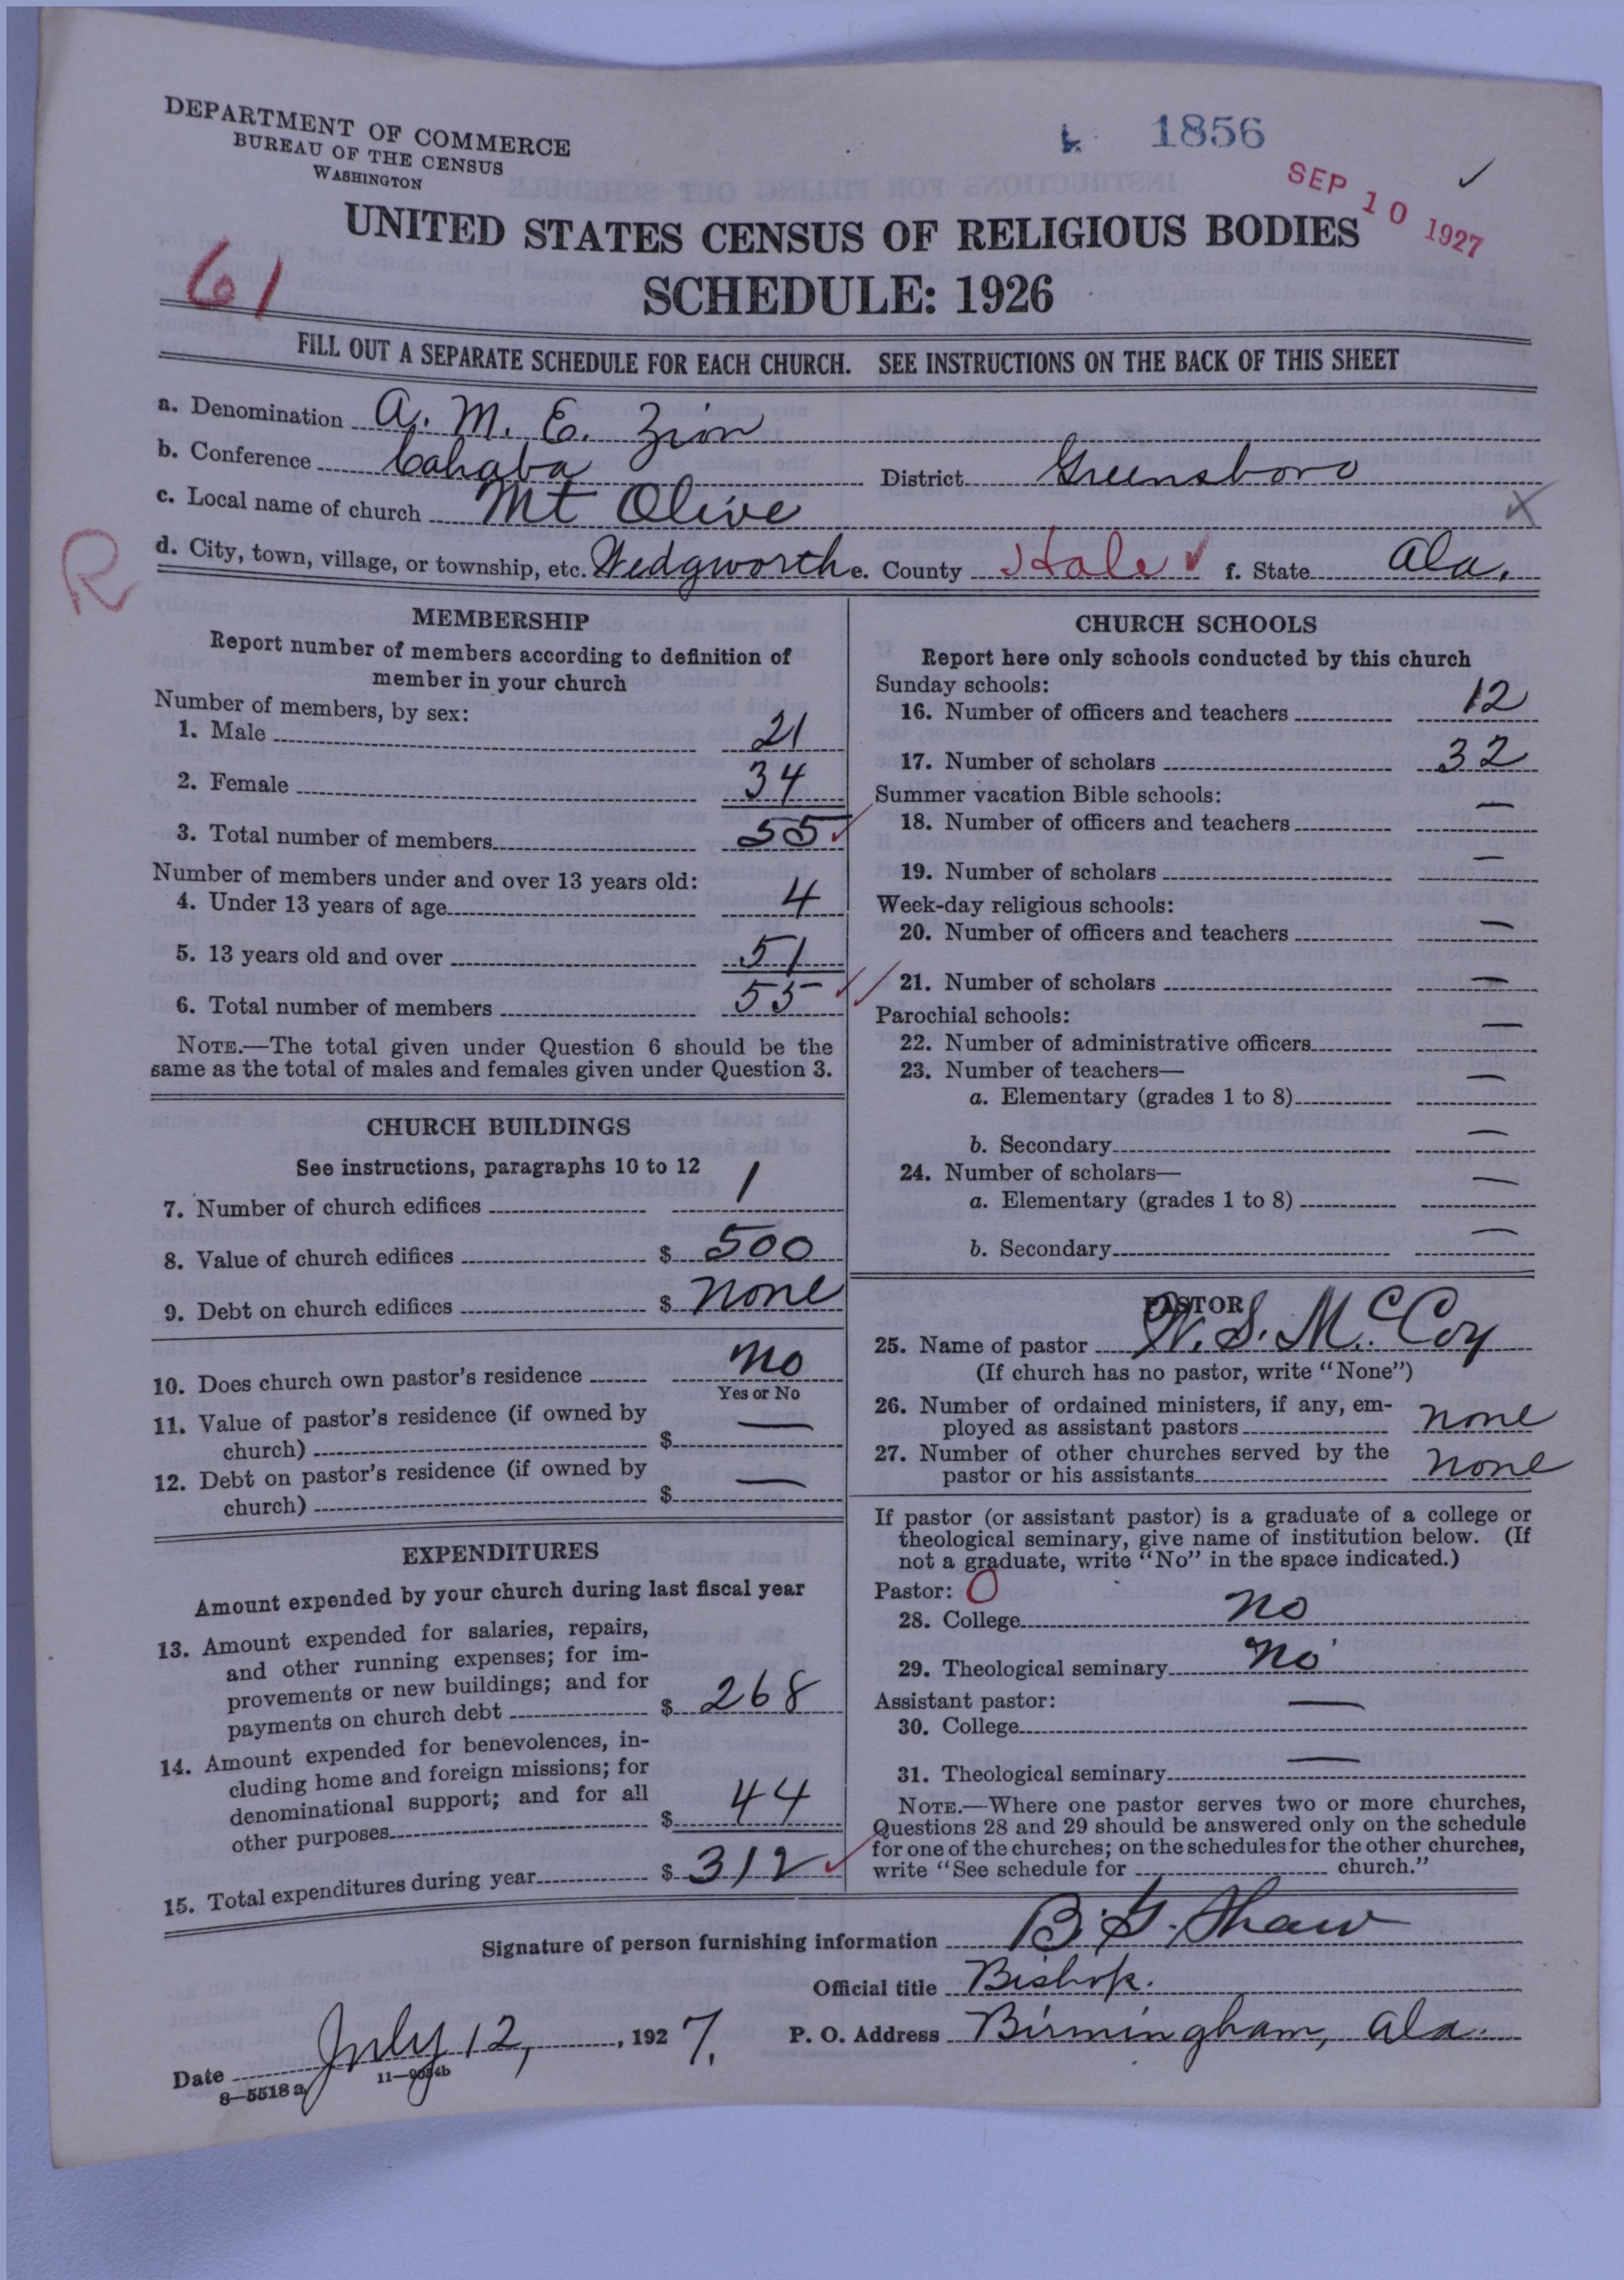 DEPARTMENT OF COMMERCE
BUREAU OF THE CENSUS
WASHINGTON
1856
SEP 10 1927
UNITED STATES CENSUS OF RELIGIOUS BODIES
SCHEDULE: 1926
61
FILL OUT A SEPARATE SCHEDULE FOR EACH CHURCH. SEE INSTRUCTIONS ON THE BACK OF THIS SHEET
a. Denomination A. M. E. Zion
b. Conference Cahaba District Greensboro
c. Local name of church Mt Olive
d. City, town, village, or township, etc. Wedgworth e. County Hale f. State Ala.
R
MEMBERSHIP
Report number of members according to definition of
member in your church
Number of members, by sex:
1. Male 21
2. Female 34
3. Total number of members 55
Number of members under and over 13 years old:
4. Under 13 years of age 4
5. 13 years old and over 51
6. Total number of members 55
NOTE.—The total given under Question 6 should be the
same as the total of males and females given under Question 3.
CHURCH BUILDINGS
See instructions, paragraphs 10 to 12
7. Number of church edifices 1
8. Value of church edifices $ 500
9. Debt on church edifices $ None
10. Does church own pastor's residence No
Yes or No
11. Value of pastor's residence (if owned by
church) $ —
12. Debt on pastor's residence (if owned by
church) $ —
EXPENDITURES
Amount expended by your church during last fiscal year
13. Amount expended for salaries, repairs,
and other running expenses; for im-
provements or new buildings; and for
payments on church debt $ 268
14. Amount expended for benevolences, in-
cluding home and foreign missions; for
denominational support; and for all
other purposes $ 44
15. Total expenditures during year $ 312
CHURCH SCHOOLS
Report here only schools conducted by this church
Sunday schools:
16. Number of officers and teachers 12
17. Number of scholars 32
Summer vacation Bible schools:
18. Number of officers and teachers —
19. Number of scholars —
Week-day religious schools:
20. Number of officers and teachers —
21. Number of scholars —
Parochial schools:
22. Number of administrative officers —
23. Number of teachers—
a. Elementary (grades 1 to 8) —
b. Secondary —
24. Number of scholars—
a. Elementary (grades 1 to 8) —
b. Secondary —
PASTOR
25. Name of pastor W. S. McCoy
(If church has no pastor, write "None")
26. Number of ordained ministers, if any, em-
ployed as assistant pastors none
27. Number of other churches served by the
pastor or his assistants none
If pastor (or assistant pastor) is a graduate of a college or
theological seminary, give name of institution below. (If
not a graduate, write "No" in the space indicated.)
Pastor: O
28. College No
29. Theological seminary No
Assistant pastor:
30. College —
31. Theological seminary —
NOTE.—Where one pastor serves two or more churches,
Questions 28 and 29 should be answered only on the schedule
for one of the churches; on the schedules for the other churches,
write "See schedule for church."
Signature of person furnishing information B. G. Shaw
Official title Bishop.
Date July 12, 1927. P. O. Address Birmingham, Ala.
8—5518a 11—9054b